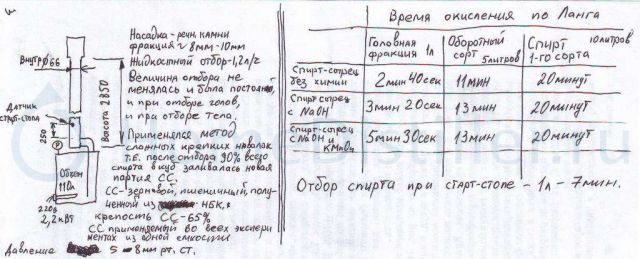 Насадка - речн. камни
фракция ~ 8мм-10мм
Жидкостной отбор-1,2л/ч
Величина отбора не
менялась и была постоянно,
и при отборе голов,
и при отборе тела.
Применялся метод
сложных крепких навалок
т.е. после отбора 90% всего
спирта в куб заливалась новая
партия СС.
СС-зерновой, пшеничный, полу-
ченный из НБК,
крепость СС-65%
СС применяемый во всех экспери
ментах из одной емкости
Внутр Ф66
Датчик
старт-стопа
250
Высота 2850
Объем
110л
220в
2,2кВт
Давление 5-8мм рт. ст.
Время окисления по Ланга
Головная фракция 1л
Оборотный сорт 5литров
Спирт 1-го сорта 10литров
Спирт-сырец без химии 2мин 40сек 11мин 20минут
Спирт сырец с NaOH 3мин 20сек 13мин 20минут
Спирт-сырец с NaOH и KMnO4 5мин 30сек 13мин 20минут
Отбор спирта при старт-стопе - 1л - 7мин.